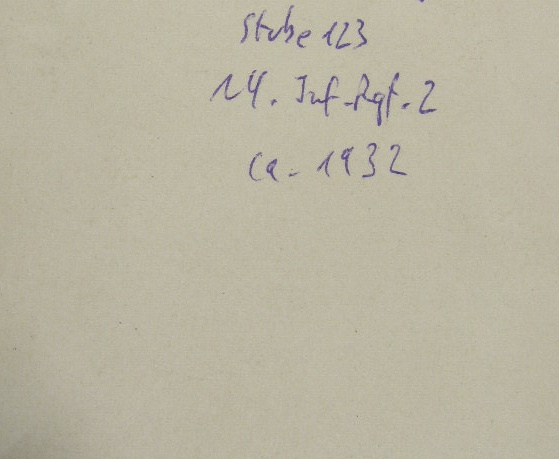 Stube 123
14. Inf.-Rgt. 2
ca. 1932